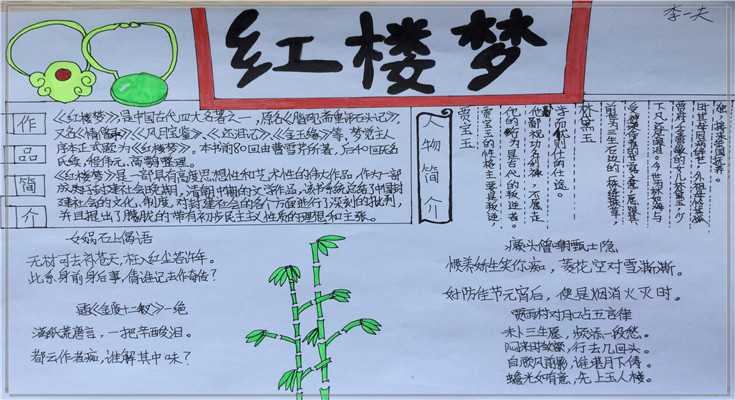 李一夫
红楼梦
作品简介
《红楼梦》是中国古代四大名著之一，原名《脂砚斋重评石头记》，
又名《情僧录》、《风月宝鉴》、《还泪记》、《金玉缘》等，梦觉主人
序本正式题为《红楼梦》。本书前80回由曹雪芹所著，后40回无名
氏续，程伟元、高鹗整理。
《红楼梦》是一部具有高度思想性和艺术性的伟大作品，作为一部
成书于封建社会晚期，清朝中期的文学作品，该书系统总结了中国封
建社会的文化、制度，对封建社会的各个方面进行了深刻的批判，
并且提出了朦胧的带有初步民主主义性质的理想和主张。
人物简介
贾宝玉
贾宝玉的性格主要是叛逆，
他的行为是古代的叛逆者。
他鄙视功名利禄，不愿走
学而优则仕的仕途。
林黛玉
前世为三生石边的一株绛珠草，
女娲石上偈语
无材可去补苍天，枉入红尘若许年。
此系身前身后事，倩谁记去作奇传？
题《金陵十二钗》一绝
满纸荒唐言，一把辛酸泪。
都云作者痴，谁解其中味？
癞头僧嘲甄士隐
惯养娇生笑你痴，菱花空对雪澌澌。
好防佳节元宵后，便是烟消火灭时。
贾雨村对月口占五言律
未卜三生愿，频添一段愁。
闷来时敛额，行去几回头。
自顾风前影，谁堪月下俦。
蟾光如有意，先上玉人楼。